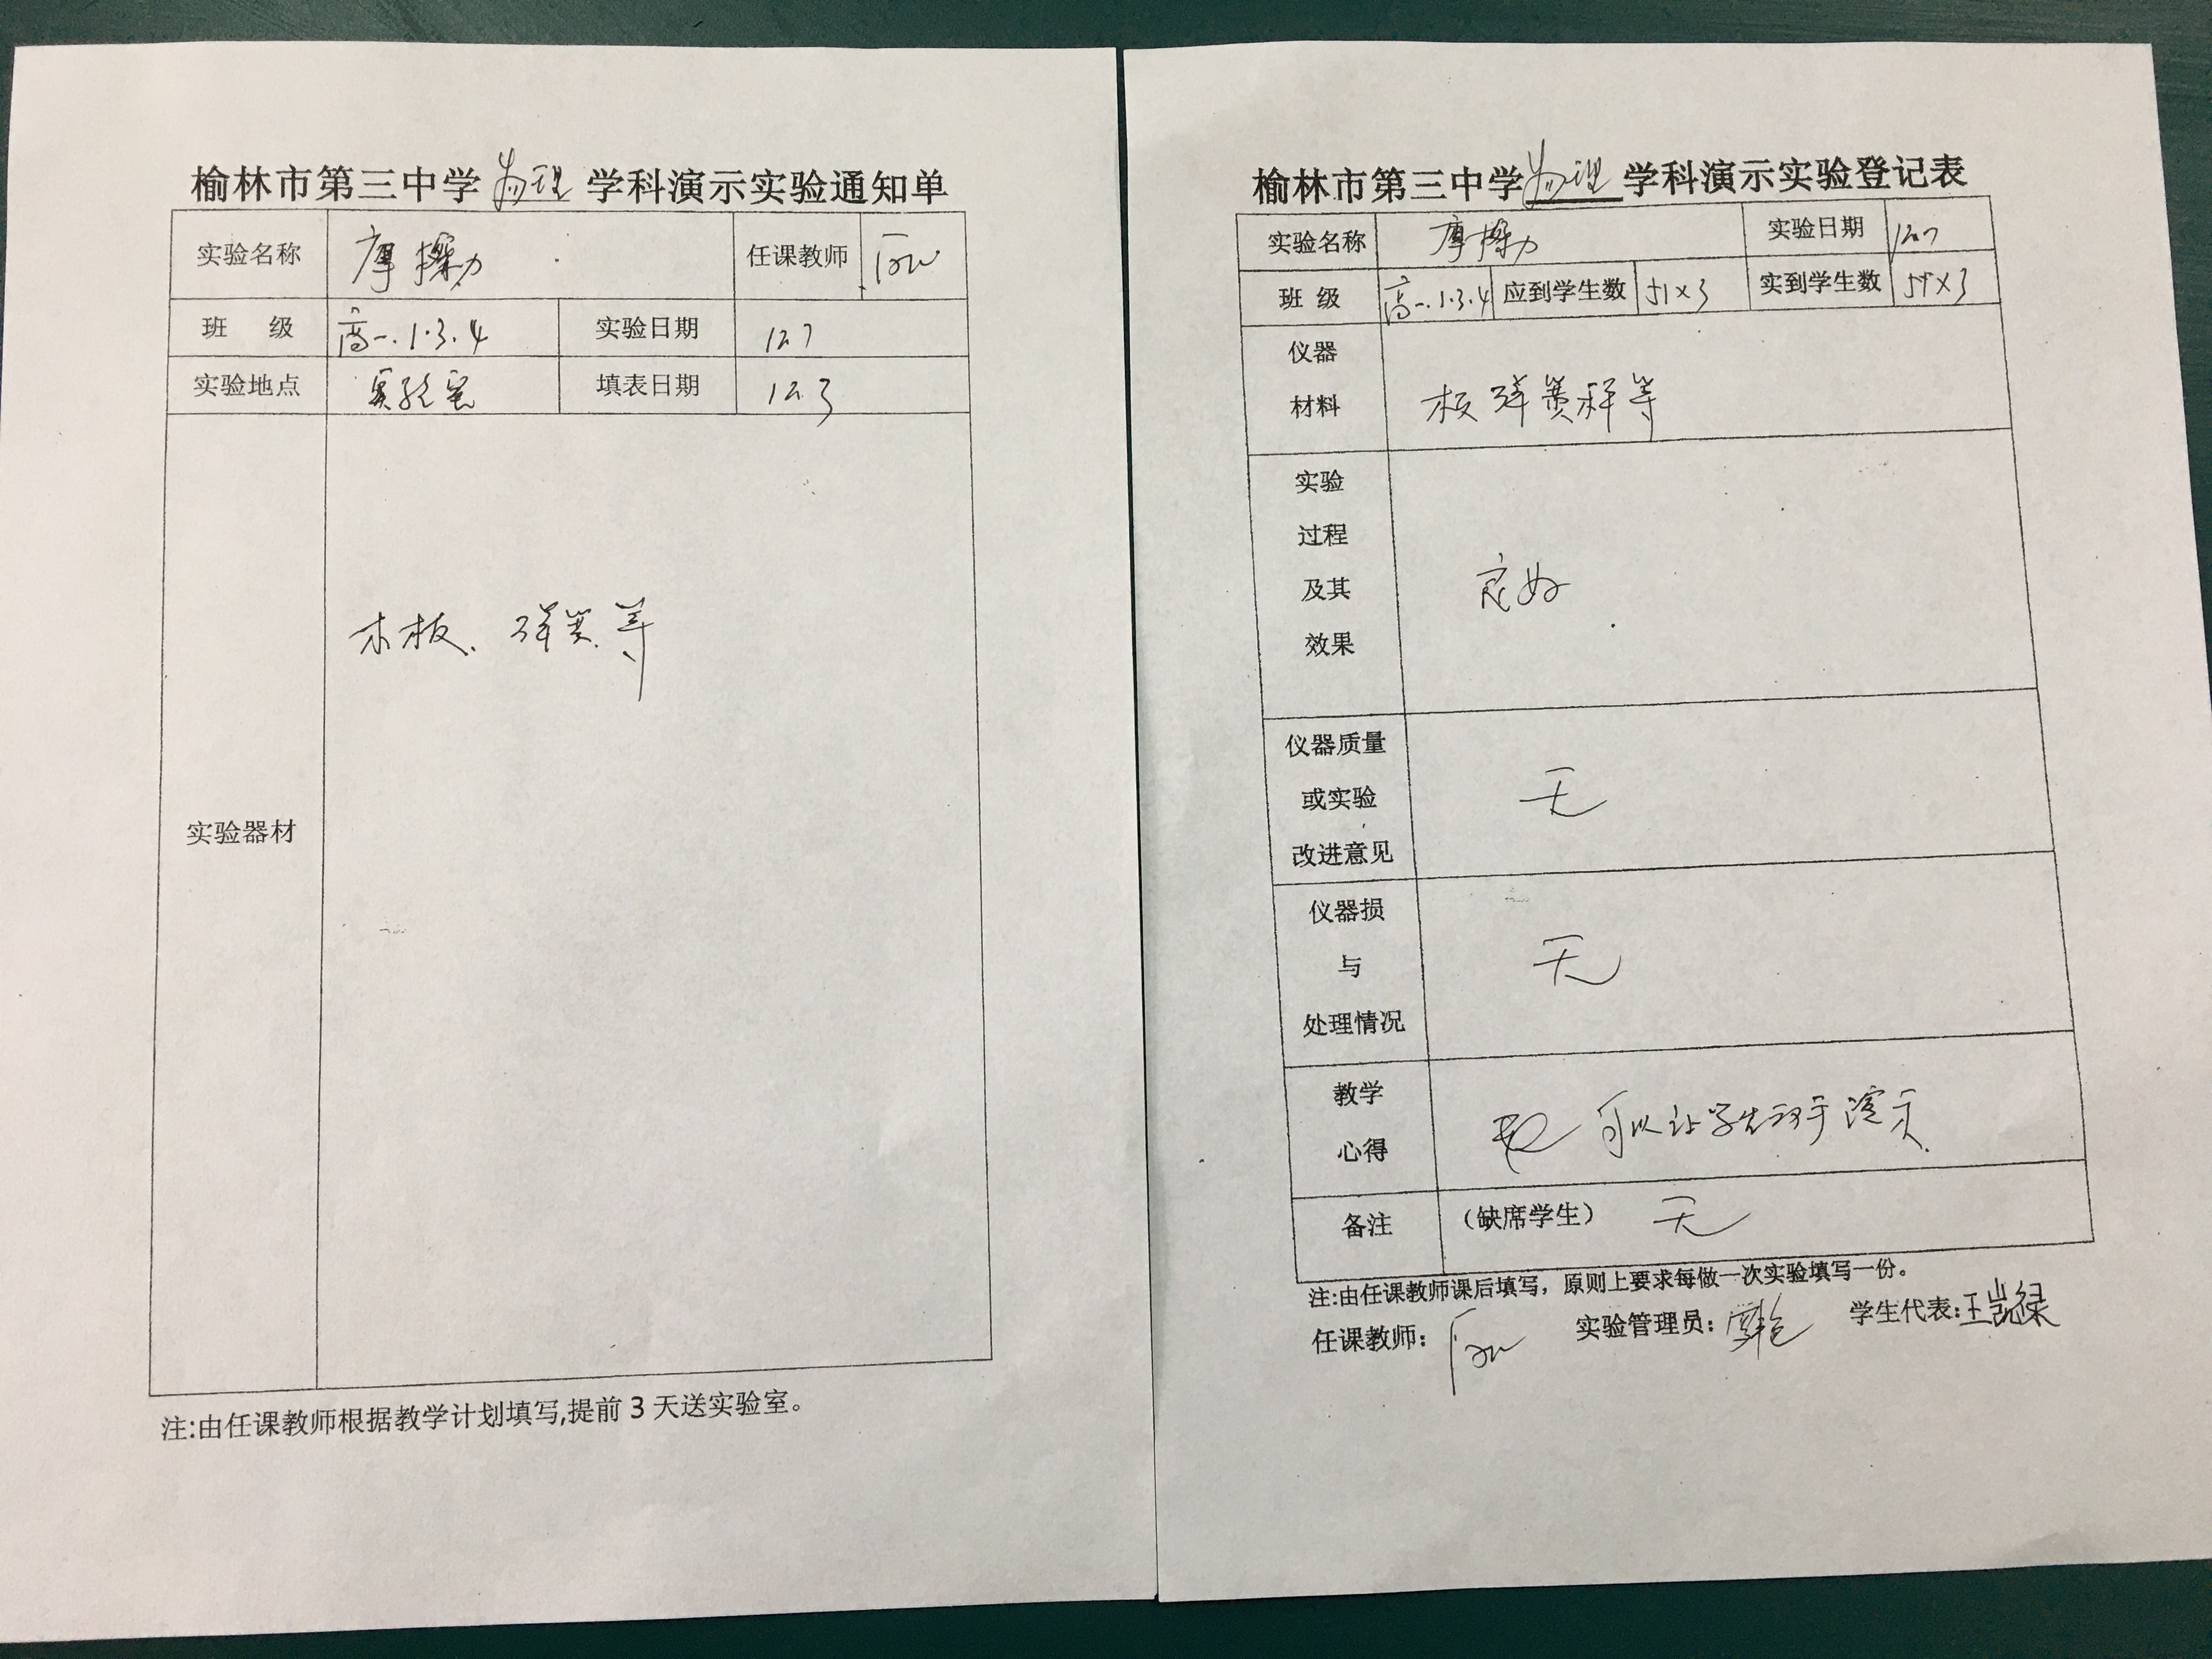 榆林市第三中学 物理 学科演示实验通知单
实验名称 摩擦力 任课教师
班 级 高一.1.3.4 实验日期 12.7
实验地点 实验室 填表日期 12.3
实验器材 木板、弹簧等
注:由任课教师根据教学计划填写,提前3天送实验室。
榆林市第三中学物理学科演示实验登记表
实验名称 摩擦力 实验日期 12.7
班 级 高一.1.3.4 应到学生数 51×3 实到学生数
仪器
材料
木板 弹簧秤等
实验
过程
及其
效果
良好
仪器质量
或实验
改进意见
无
仪器损
与
处理情况
无
教学
心得
可以让学生动手演示
备注 (缺席学生) 无
注:由任课教师课后填写，原则上要求每做一次实验填写一份。
任课教师: 实验管理员: 学生代表: